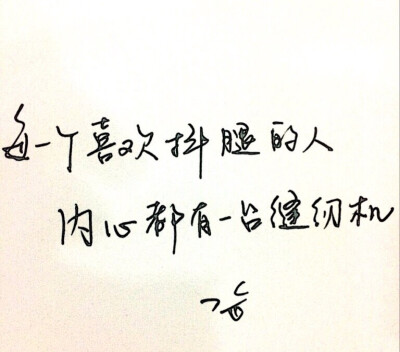 每一个喜欢抖腿的人
内心都有一台缝纫机